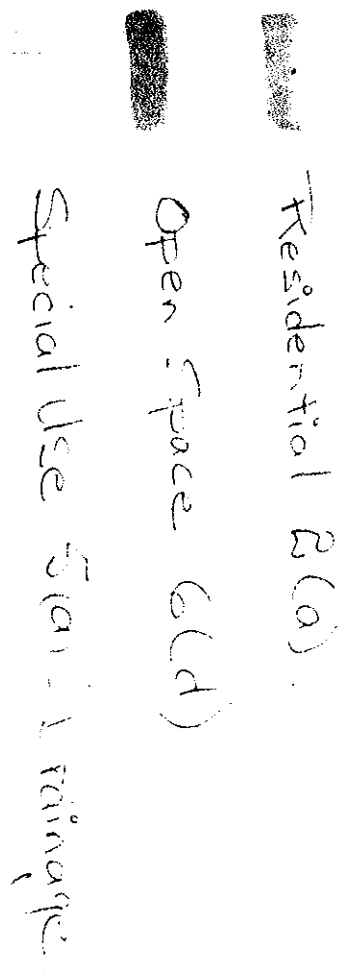 Residential 2(a).
Open Space 6(d)
Special Use 5(a) Drainage